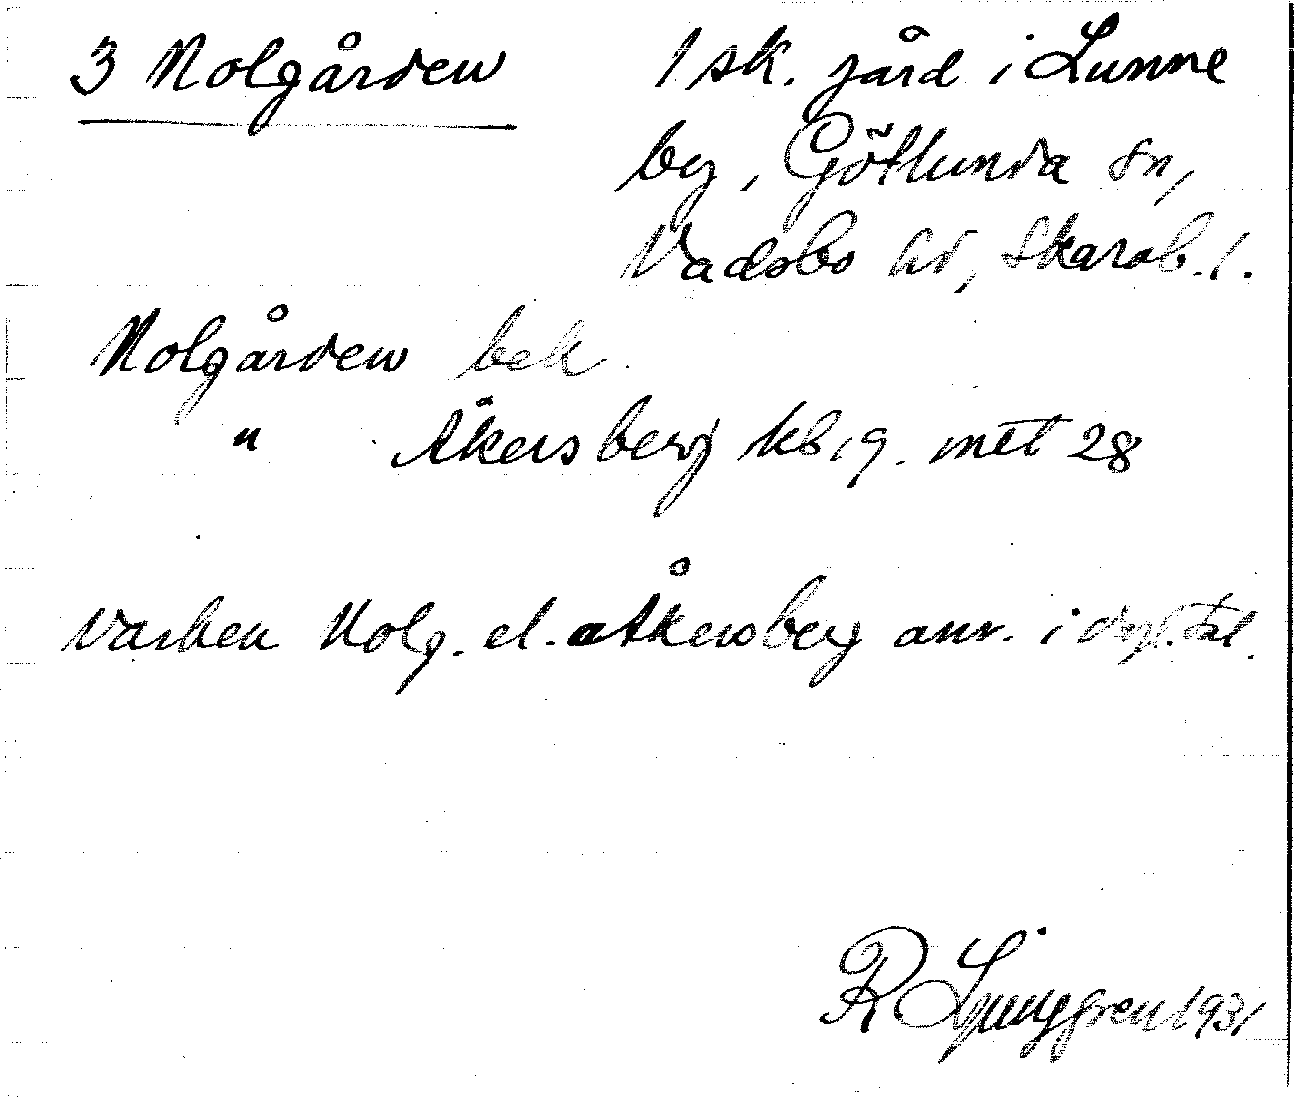 3 Nolgården
1 sk. jård i Lunne
by, Götlunda sn,
Vadsbo hd, Skarab. l.
Nolgården bek.
" Åkersberg kbig. met 28
Varken Nolg. el. Åkersberg anv. i dagl. tal.
R Ljunggren 1931